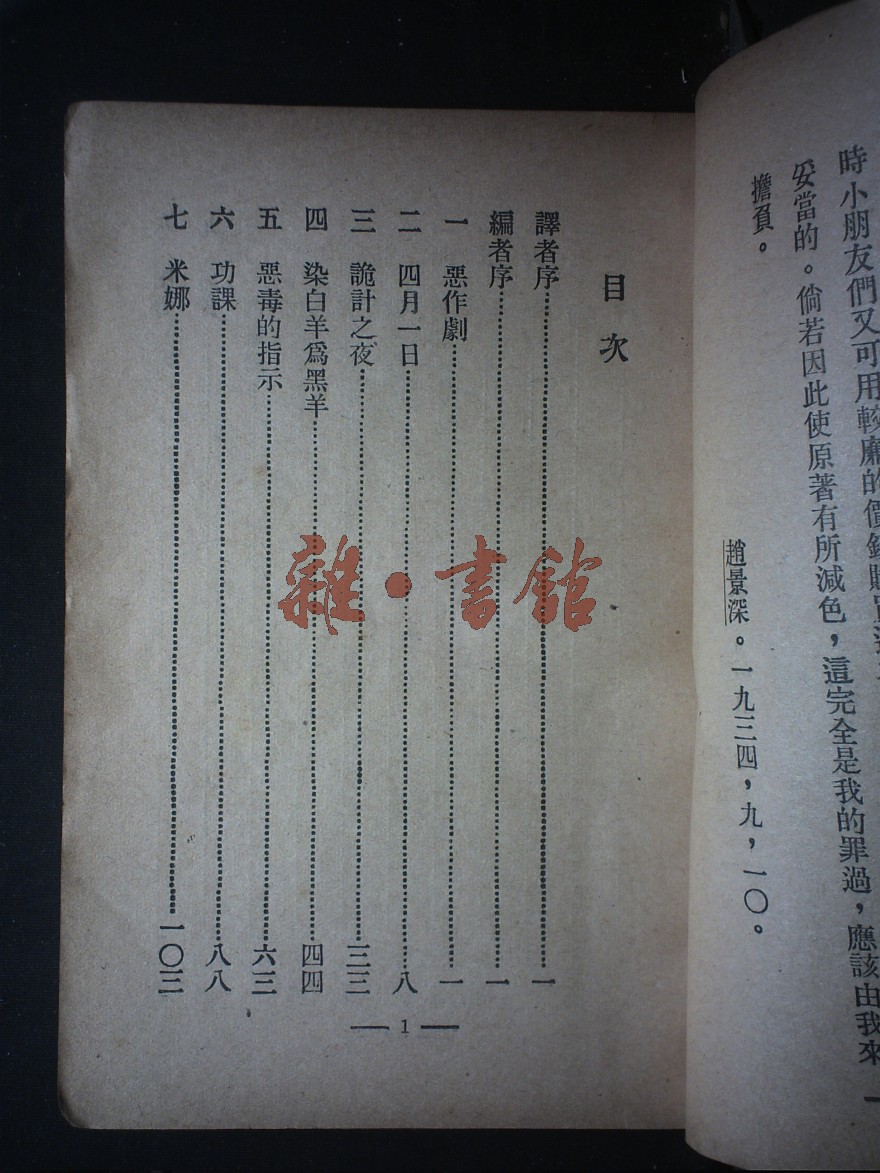 時小朋友們又可用較廉的價錢購買
妥當的。倘若因此使原著有所減色，這完全是我的罪過，應該由我來
擔負。
趙景深。一九三四，九，一〇。
目次
譯者序…………一
編者序…………一
一 惡作劇…………一
二 四月一日…………八
三 詭計之夜…………三三
四 染白羊爲黑羊…………四四
五 惡毒的指示…………六三
六 功課…………八八
七 米娜…………一〇三
— 1 —
雜·書館